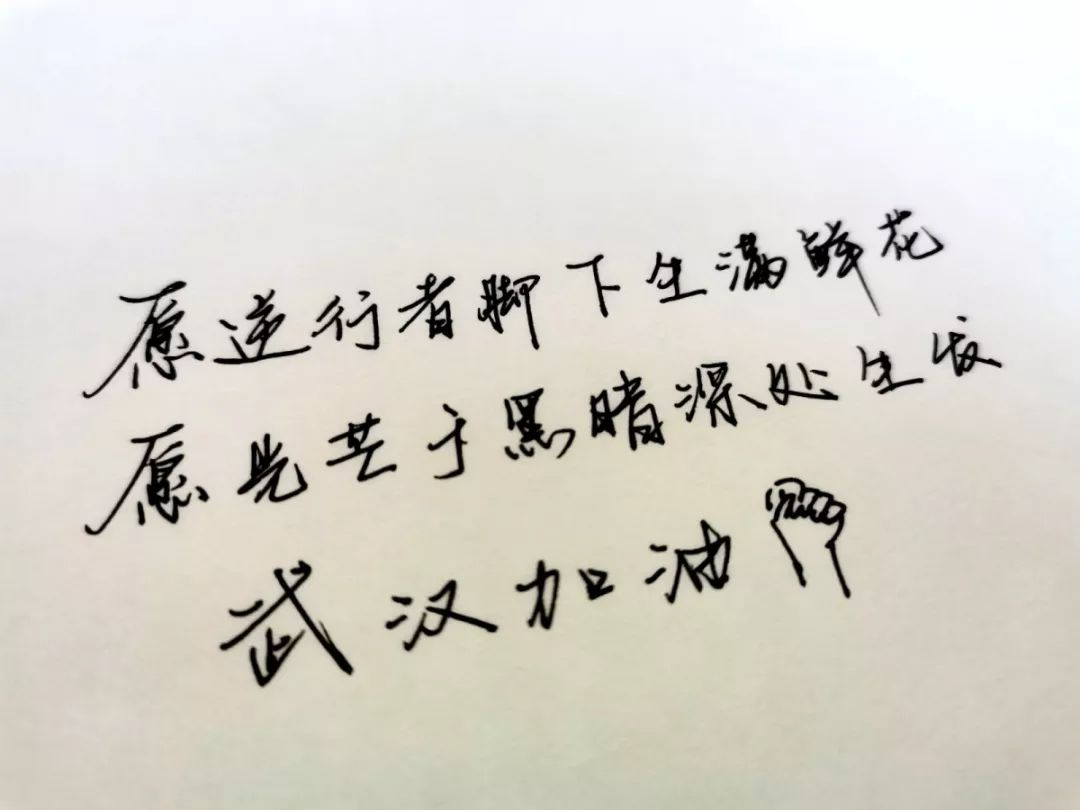 愿逆行者脚下生满鲜花
愿光芒于黑暗深处生发
武汉加油